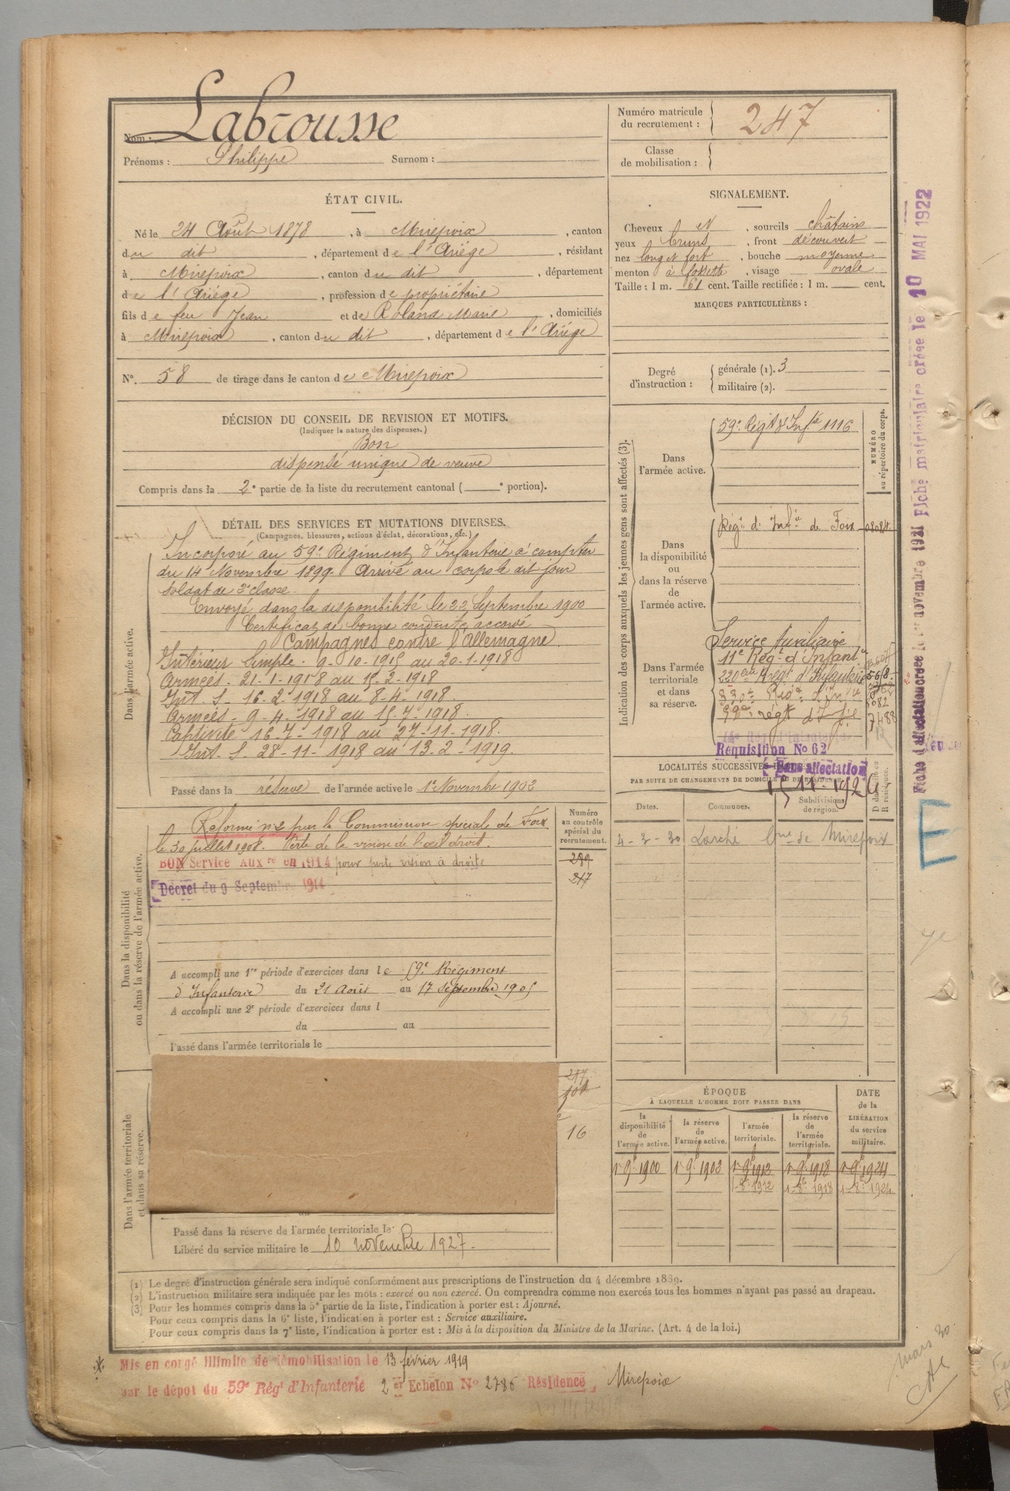 Nom : Labrousse
Prénoms : Philippe Surnom :
Numéro matricule
du recrutement : 247
Classe
de mobilisation :
ÉTAT CIVIL.
Né le 24 Août 1878, à Mirepoix, canton
du dit, département de l'Ariège, résidant
à Mirepoix, canton du dit, département
de l'Ariège, profession de propriétaire
fils de feu Jean et de Roland Marie, domiciliés
à Mirepoix, canton du dit, département de l'Ariège
N° 58 de tirage dans le canton de Mirepoix
SIGNALEMENT.
Cheveux et, sourcils châtains
yeux bruns, front découvert
nez long et fort, bouche moyenne
menton à fossette, visage ovale
Taille : 1 m. 61 cent. Taille rectifiée : 1 m. cent.
MARQUES PARTICULIÈRES :
Degré
d'instruction :
générale (1). 3
militaire (2).
DÉCISION DU CONSEIL DE REVISION ET MOTIFS.
(Indiquer la nature des dispenses.)
Bon
dispensé unique de veuve
Compris dans la 2e partie de la liste du recrutement cantonal ( e portion).
DÉTAIL DES SERVICES ET MUTATIONS DIVERSES.
(Campagnes, blessures, actions d'éclat, décorations, etc.)
Dans l'armée active.
Incorporé au 59e Régiment d'Infanterie à compter
du 14 Novembre 1899. Arrivé au corps le dit jour
soldat de 2e classe.
Envoyé dans la disponibilité le 22 Septembre 1900
Certificat de bonne conduite accordé
Campagnes contre l'Allemagne
Intérieur Simple - 9-10-1915 au 20-1-1918
Armées - 21-1-1918 au 15-2-1918
Int. S - 16-2-1918 au 8-4-1918
Armées - 9-4-1918 au 15-7-1918.
Captivité 16-7-1918 au 27-11-1918.
Int. S 28-11-1918 au 13-2-1919.
Passé dans la réserve de l'armée active le 1er Novembre 1902
Indication des corps auxquels les jeunes gens sont affectés (3).
NUMÉRO
au répertoire du corps.
Dans
l'armée active.
59e Régt d'Infie 1116
Dans
la disponibilité
ou
dans la réserve
de
l'armée active.
Régt d'Infie de Foix
Dans l'armée
territoriale
et dans
sa réserve.
Service Auxiliaire
11e Rég. d'Infant
Requisition No 62
Sans affectation
LOCALITÉS SUCCESSIVES
PAR SUITE DE CHANGEMENTS DE DOMICILE
Dates.
Communes.
Subdivisions
de région.
4-2-30 Larché Bne de Mirepoix
Dans la disponibilité
ou dans la réserve de l'armée active.
Réformé no 2 par la Commission spéciale de Foix
le 30 juillet 1908. Perte de la vision de l'œil droit.
BON Service Auxre en 1914 pour perte vision à droite
Décret du 9 Septembre 1914
Numéro
au contrôle
spécial du
recrutement.
247
A accompli une 1re période d'exercices dans le 59e Régiment
d'Infanterie du 21 Août au 17 Septembre 1905
A accompli une 2e période d'exercices dans l
du au
Passé dans l'armée territoriale le
Dans l'armée territoriale
et dans sa réserve.
16
Passé dans la réserve de l'armée territoriale le
Libéré du service militaire le 10 novembre 1927.
ÉPOQUE
À LAQUELLE L'HOMME DOIT PASSER DANS
DATE
de la
LIBÉRATION
du service
militaire.
la
disponibilité
de
l'armée active.
la réserve
de
l'armée active.
l'armée
territoriale.
la réserve
de
l'armée
territoriale.
1er 9bre 1900 1er 9bre 1902 1er 9bre 1912 1er 9bre 1918 1er 9bre 1924
(1) Le degré d'instruction générale sera indiqué conformément aux prescriptions de l'instruction du 4 décembre 1889.
(2) L'instruction militaire sera indiquée par les mots : exercé ou non exercé. On comprendra comme non exercés tous les hommes n'ayant pas passé au drapeau.
(3) Pour les hommes compris dans la 5e partie de la liste, l'indication à porter est : Ajourné.
Pour ceux compris dans la 6e liste, l'indication à porter est : Service auxiliaire.
Pour ceux compris dans la 7e liste, l'indication à porter est : Mis à la disposition du Ministre de la Marine. (Art. 4 de la loi.)
Mis en congé illimité de démobilisation le 13 février 1919
par le dépôt du 59e Régt d'Infanterie 2er Echelon No 2786 Résidence, Mirepoix
Fiche matriculaire créée le 10 MAI 1922
E
Mars 30